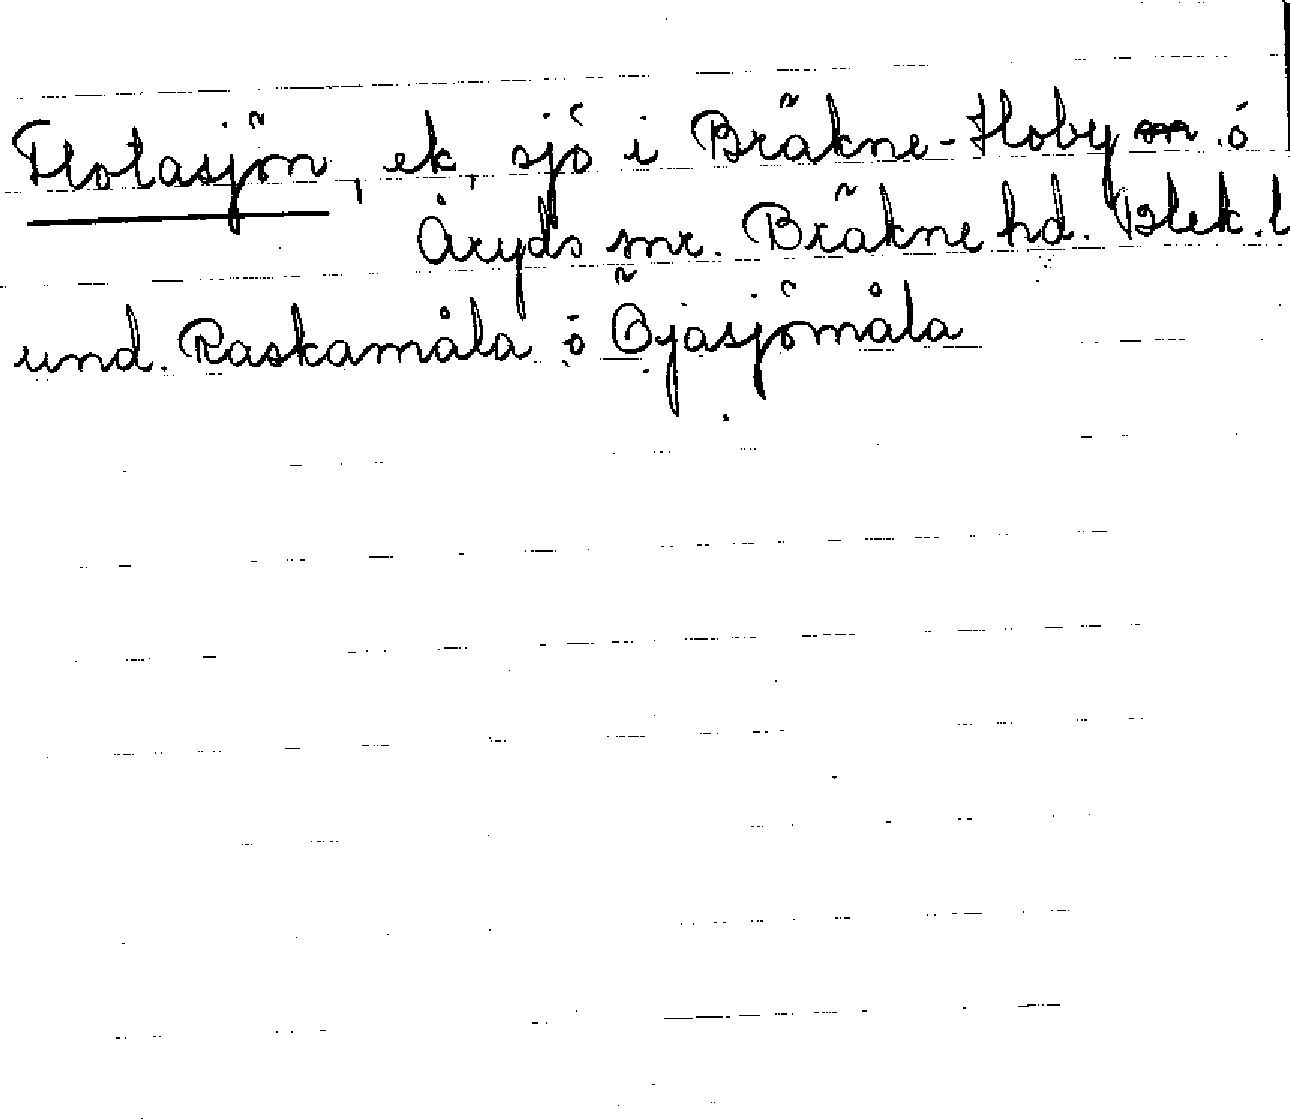 Flotasjön, ek, sjö i Bräkne-Hoby o
Åryds snr. Bräkne hd. Blek. l
und. Raskamåla o Öjasjömåla